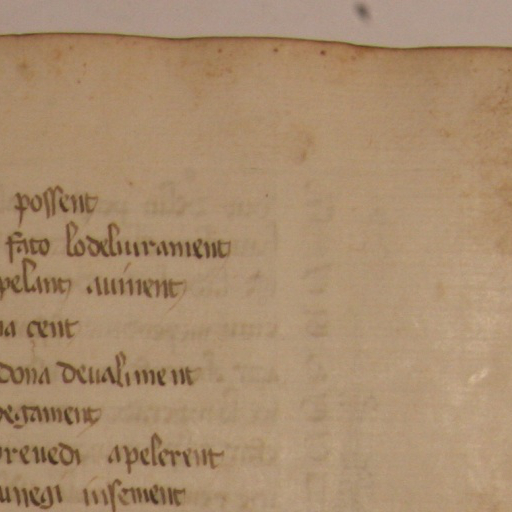 possent
fato lodeliurament
pelant auinent
na çent
dona deualiment
pegament
preuedi apelerent
insement